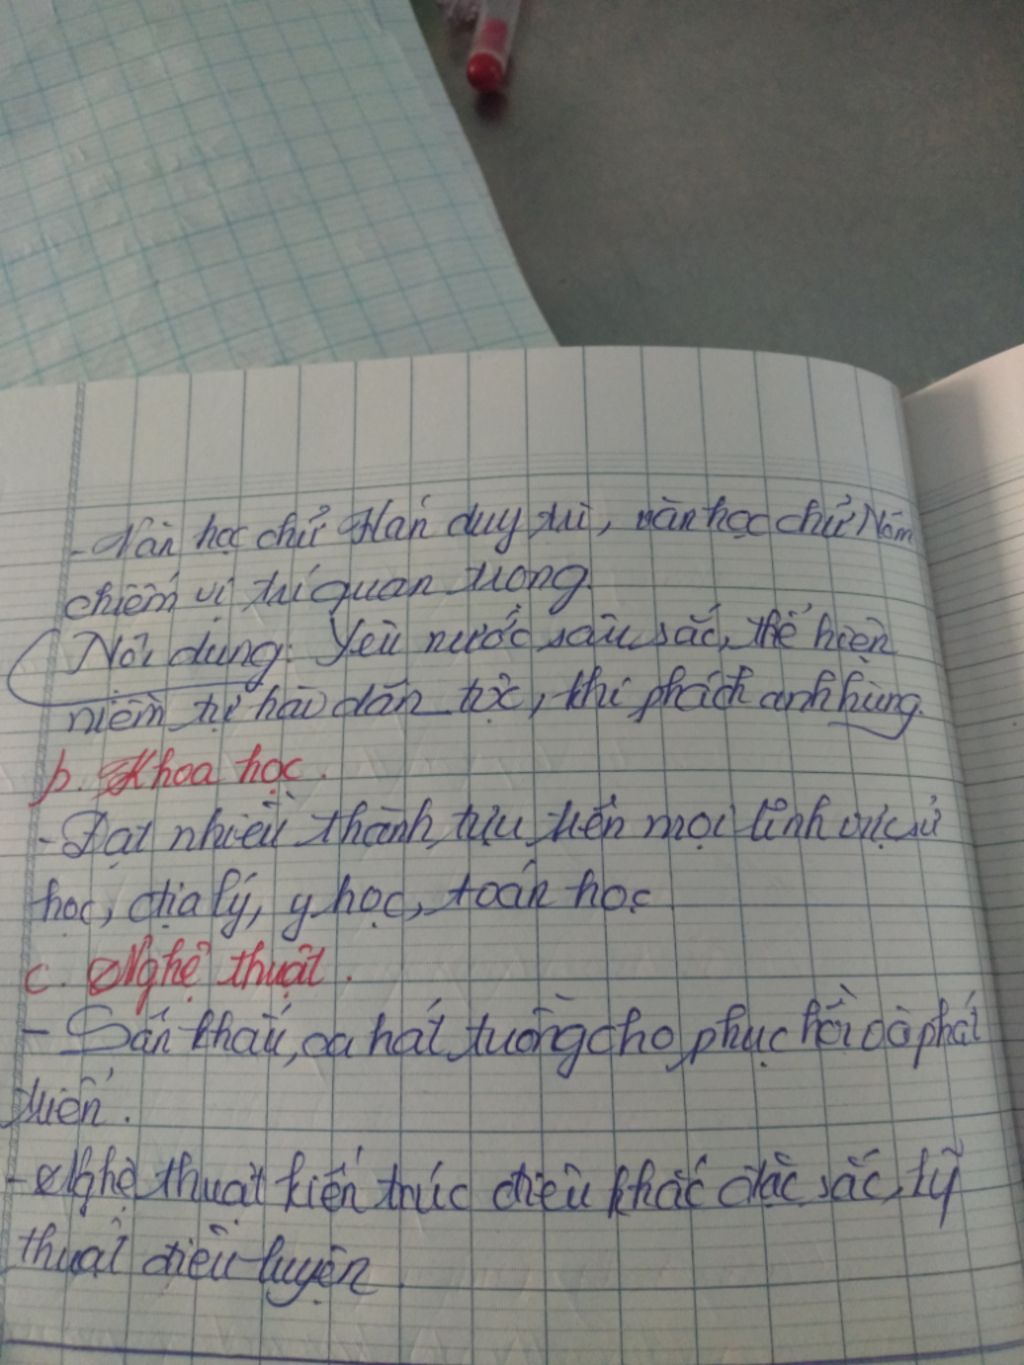 - Văn học chữ Hán duy trì, văn học chữ Nôm
chiếm vị trí quan trọng.
Nội dung: Yêu nước sâu sắc, thể hiện
niềm tự hào dân tộc, khí phách anh hùng.
b. Khoa học.
- Đạt nhiều thành tựu trên mọi lĩnh vực, sử
học, địa lý, y học, toán học
c. Nghệ thuật.
- Sân khấu, ca hát, tuồng chèo phục hồi và phát
triển.
- Nghệ thuật kiến trúc điêu khắc đặc sắc, kỹ
thuật điêu luyện.